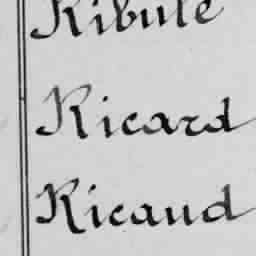 Ribule
Ricard
Ricaud